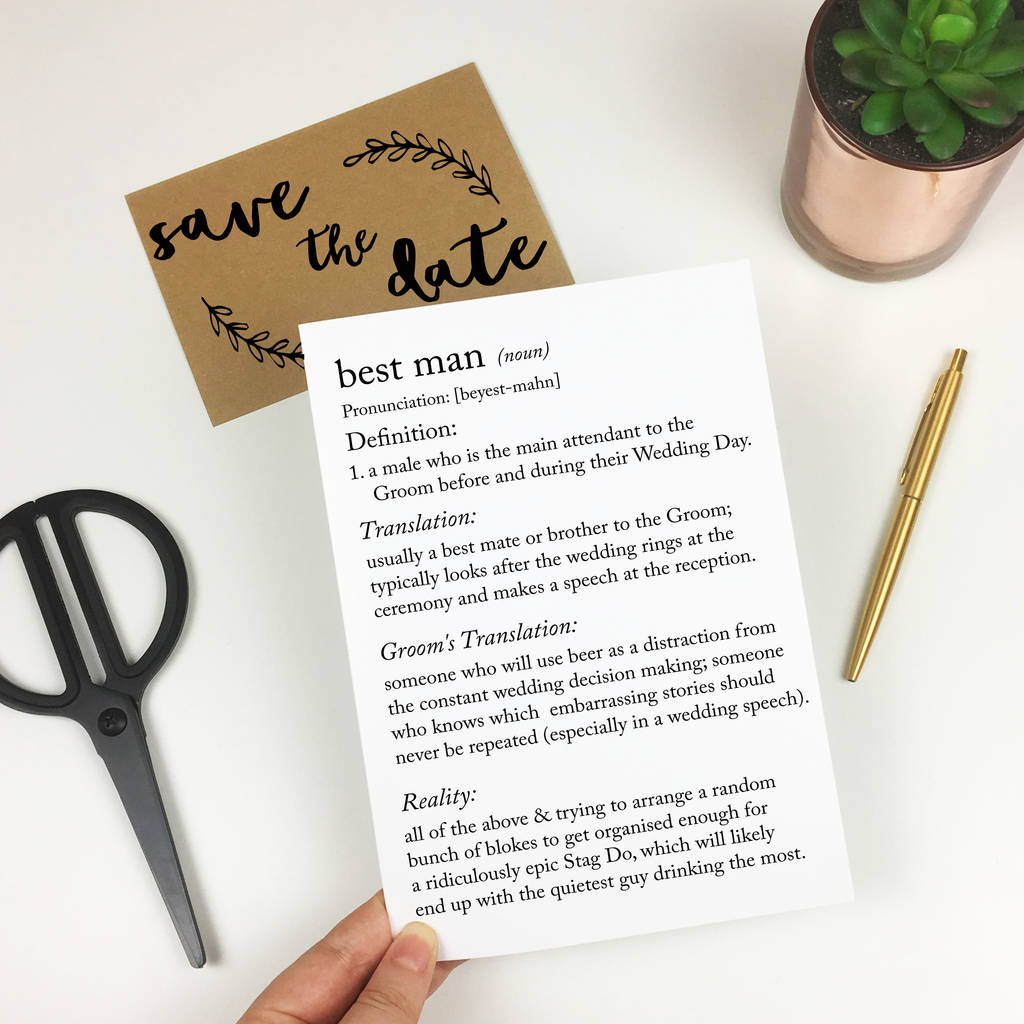 save
the
date
best man (noun)
Pronunciation: [beyest-mahn]
Definition:
1. a male who is the main attendant to the
Groom before and during their Wedding Day.
Translation:
usually a best mate or brother to the Groom;
typically looks after the wedding rings at the
ceremony and makes a speech at the reception.
Groom's Translation:
someone who will use beer as a distraction from
the constant wedding decision making; someone
who knows which embarrassing stories should
never be repeated (especially in a wedding speech).
Reality:
all of the above & trying to arrange a random
bunch of blokes to get organised enough for
a ridiculously epic Stag Do, which will likely
end up with the quietest guy drinking the most.